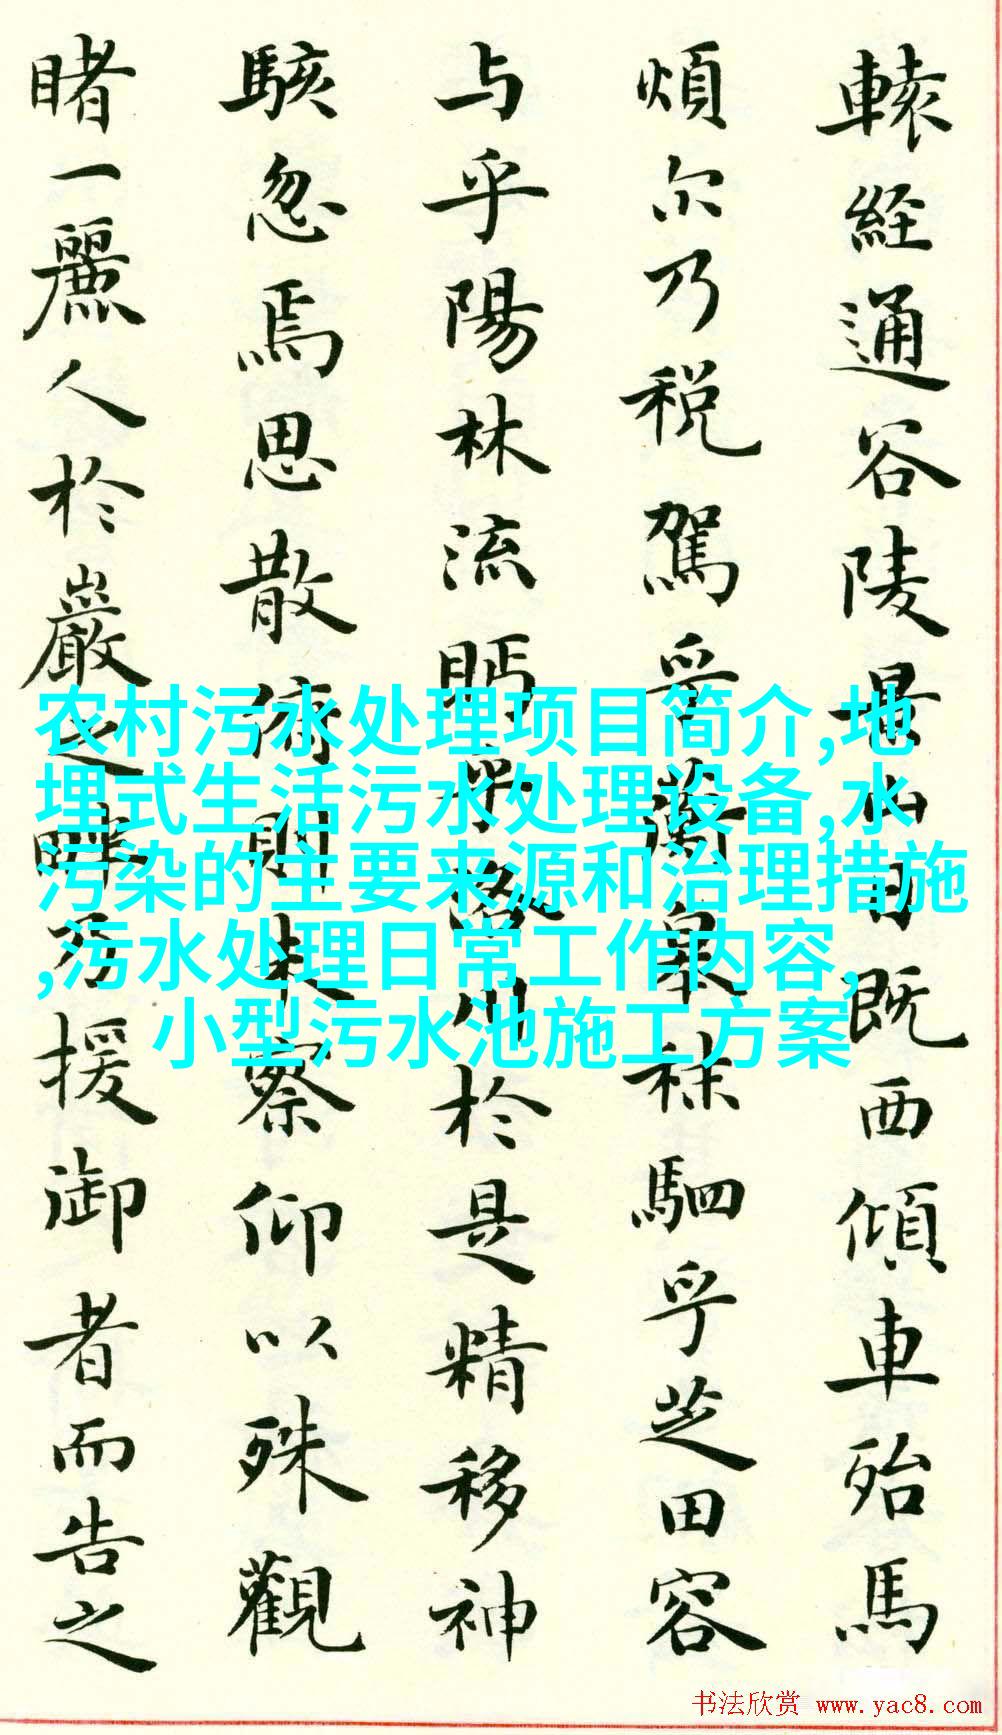 轅経通谷陵景山日既西傾車殆馬
煩尔乃税駕乎蘅皋秣駟乎芝田容
与乎陽林流眄乎洛川於是精移神
駭忽焉思散俯則未察仰以殊觀
睹一麗人於巖之畔乃援御者而告之
农村污水处理项目简介,地
埋式生活污水处理设备,水
污染的主要来源和治理措施
,污水处理日常工作内容,
小型污水池施工方案
书法欣赏 www.yac8.com